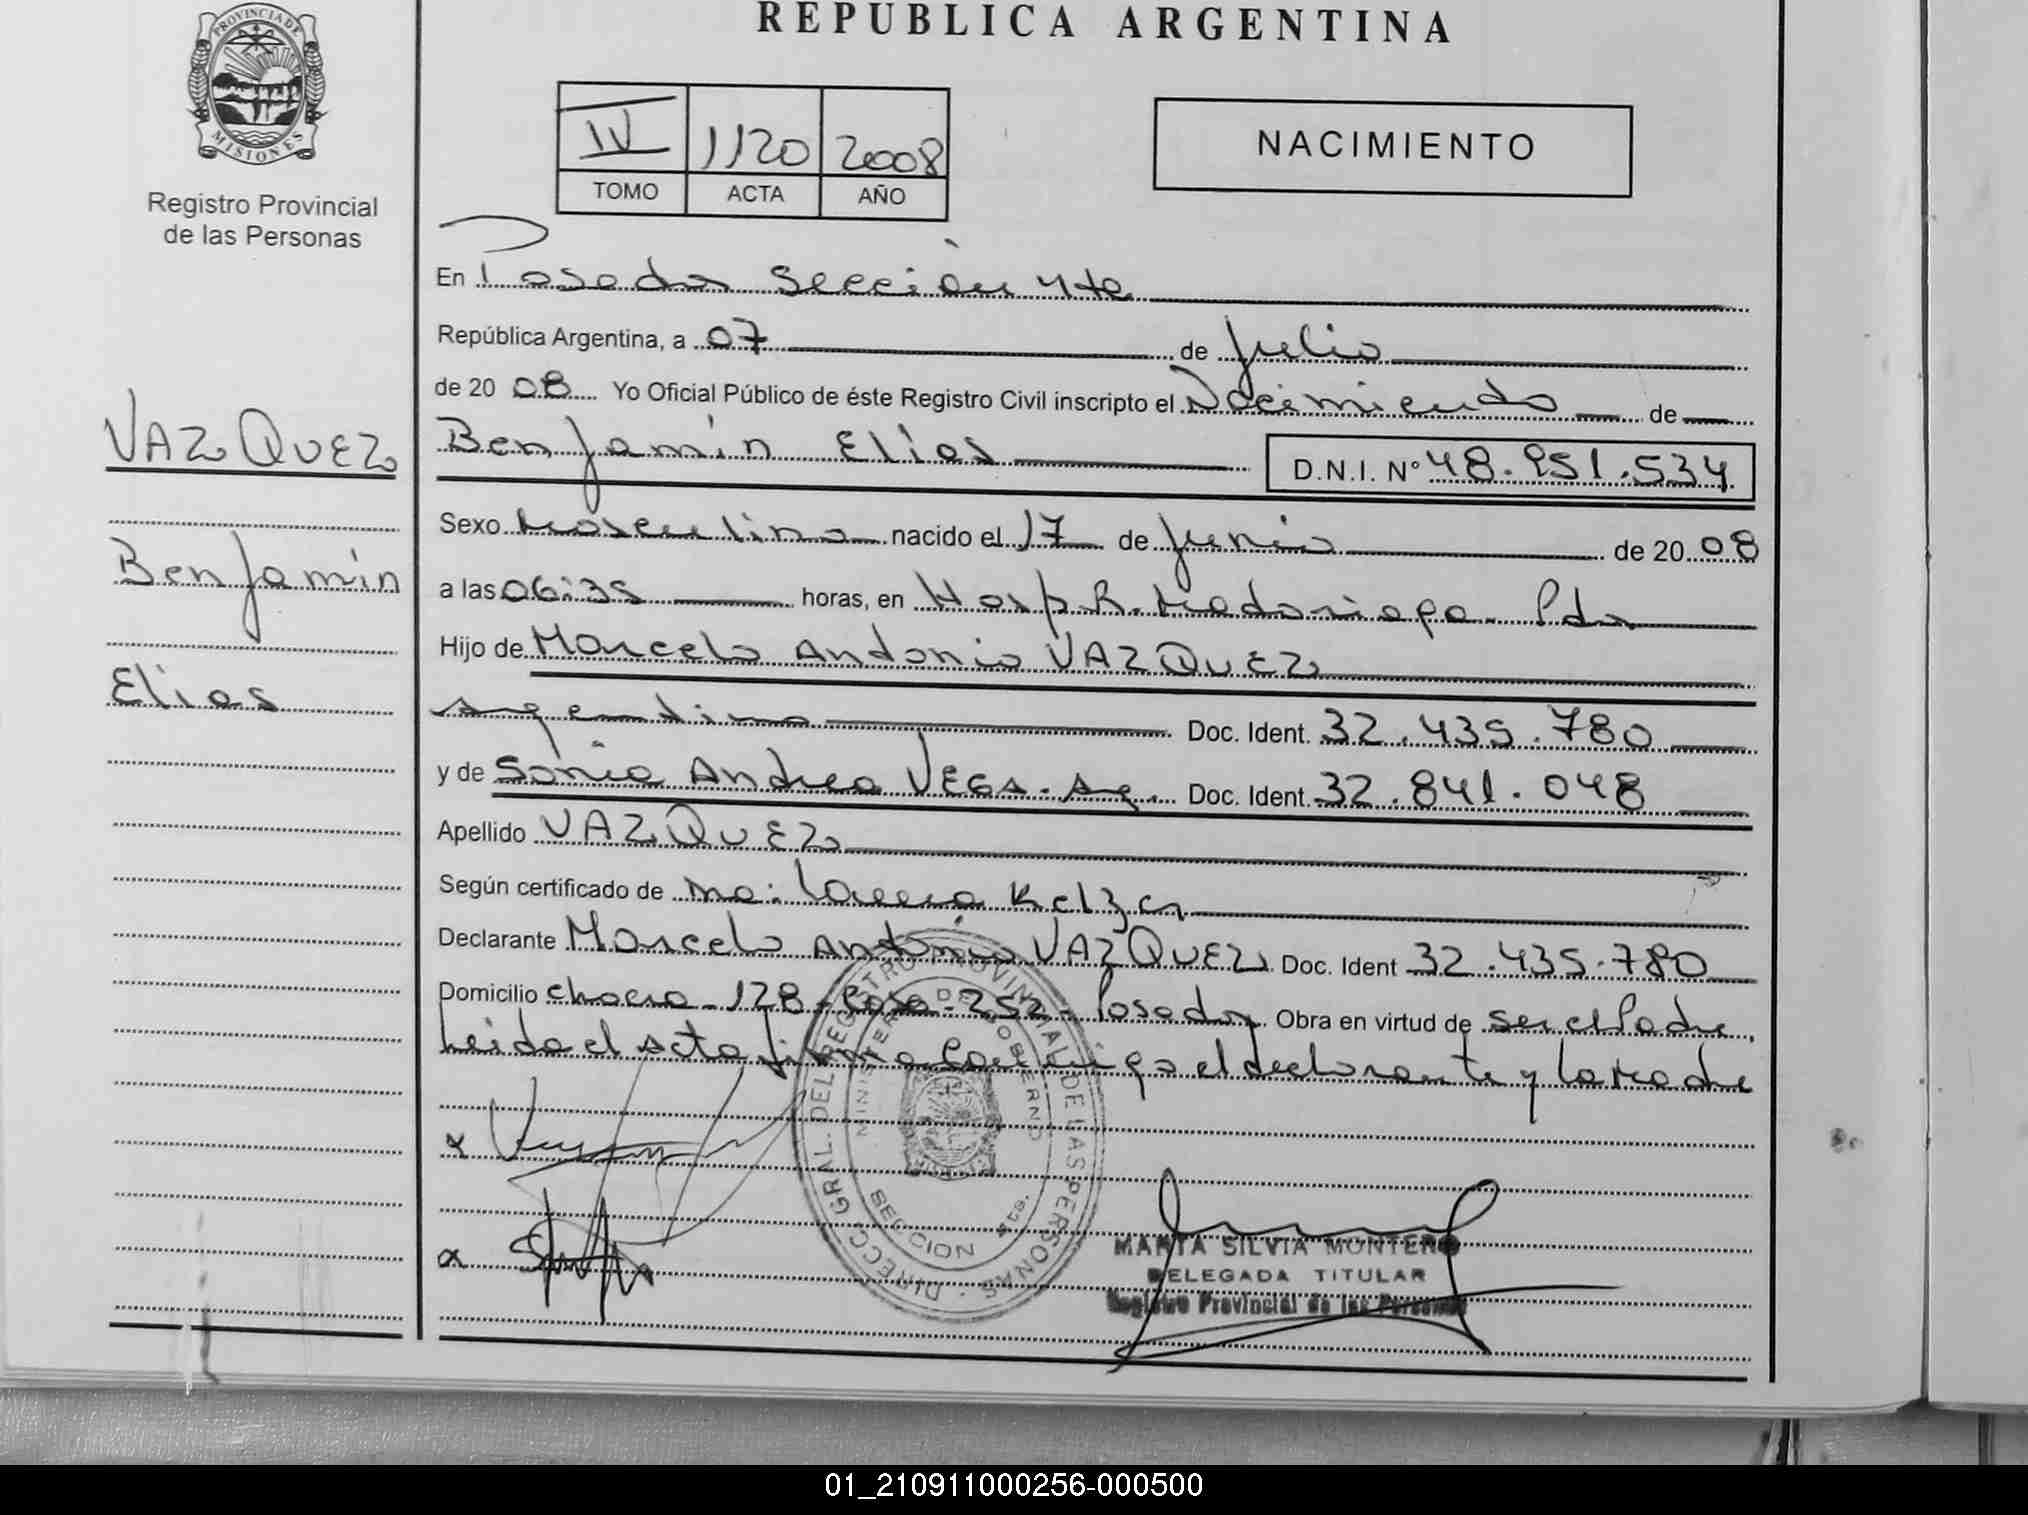 REPUBLICA ARGENTINA
PROVINCIA DE MISIONES
Registro Provincial
de las Personas
IV 1120 2008
TOMO ACTA AÑO
NACIMIENTO
En Posadas Sección 4ta
República Argentina, a 07 de Julio
de 20 08 Yo Oficial Público de éste Registro Civil inscripto el Nacimiento de
VAZQUEZ
Benjamín Elias D.N.I. Nº 48.951.534
Sexo Masculino nacido el 17 de Junio de 20 08
Benjamín
a las 06:35 horas, en Hosp R. Madariaga - Pdas
Hijo de Marcelo Antonio VAZQUEZ
Elias
Argentino Doc. Ident. 32.435.780
y de Sonia Andrea VEGA - Arg. Doc. Ident. 32.841.048
Apellido VAZQUEZ
Según certificado de
Declarante Marcelo Antonio VAZQUEZ Doc. Ident 32.435.780
Domicilio chacra - 128 - Casa - 252 - Posadas Obra en virtud de ser el Padre,
Leida el Acta firma Conmigo el declarante y la Madre
DIRECC. GRAL. DEL REGISTRO PROVINCIAL DE LAS PERSONAS
MINISTERIO DE GOBIERNO
SECCION 4ta.
MARTA SILVIA MONTERO
DELEGADA TITULAR
Registro Provincial de las Personas
01_210911000256-000500